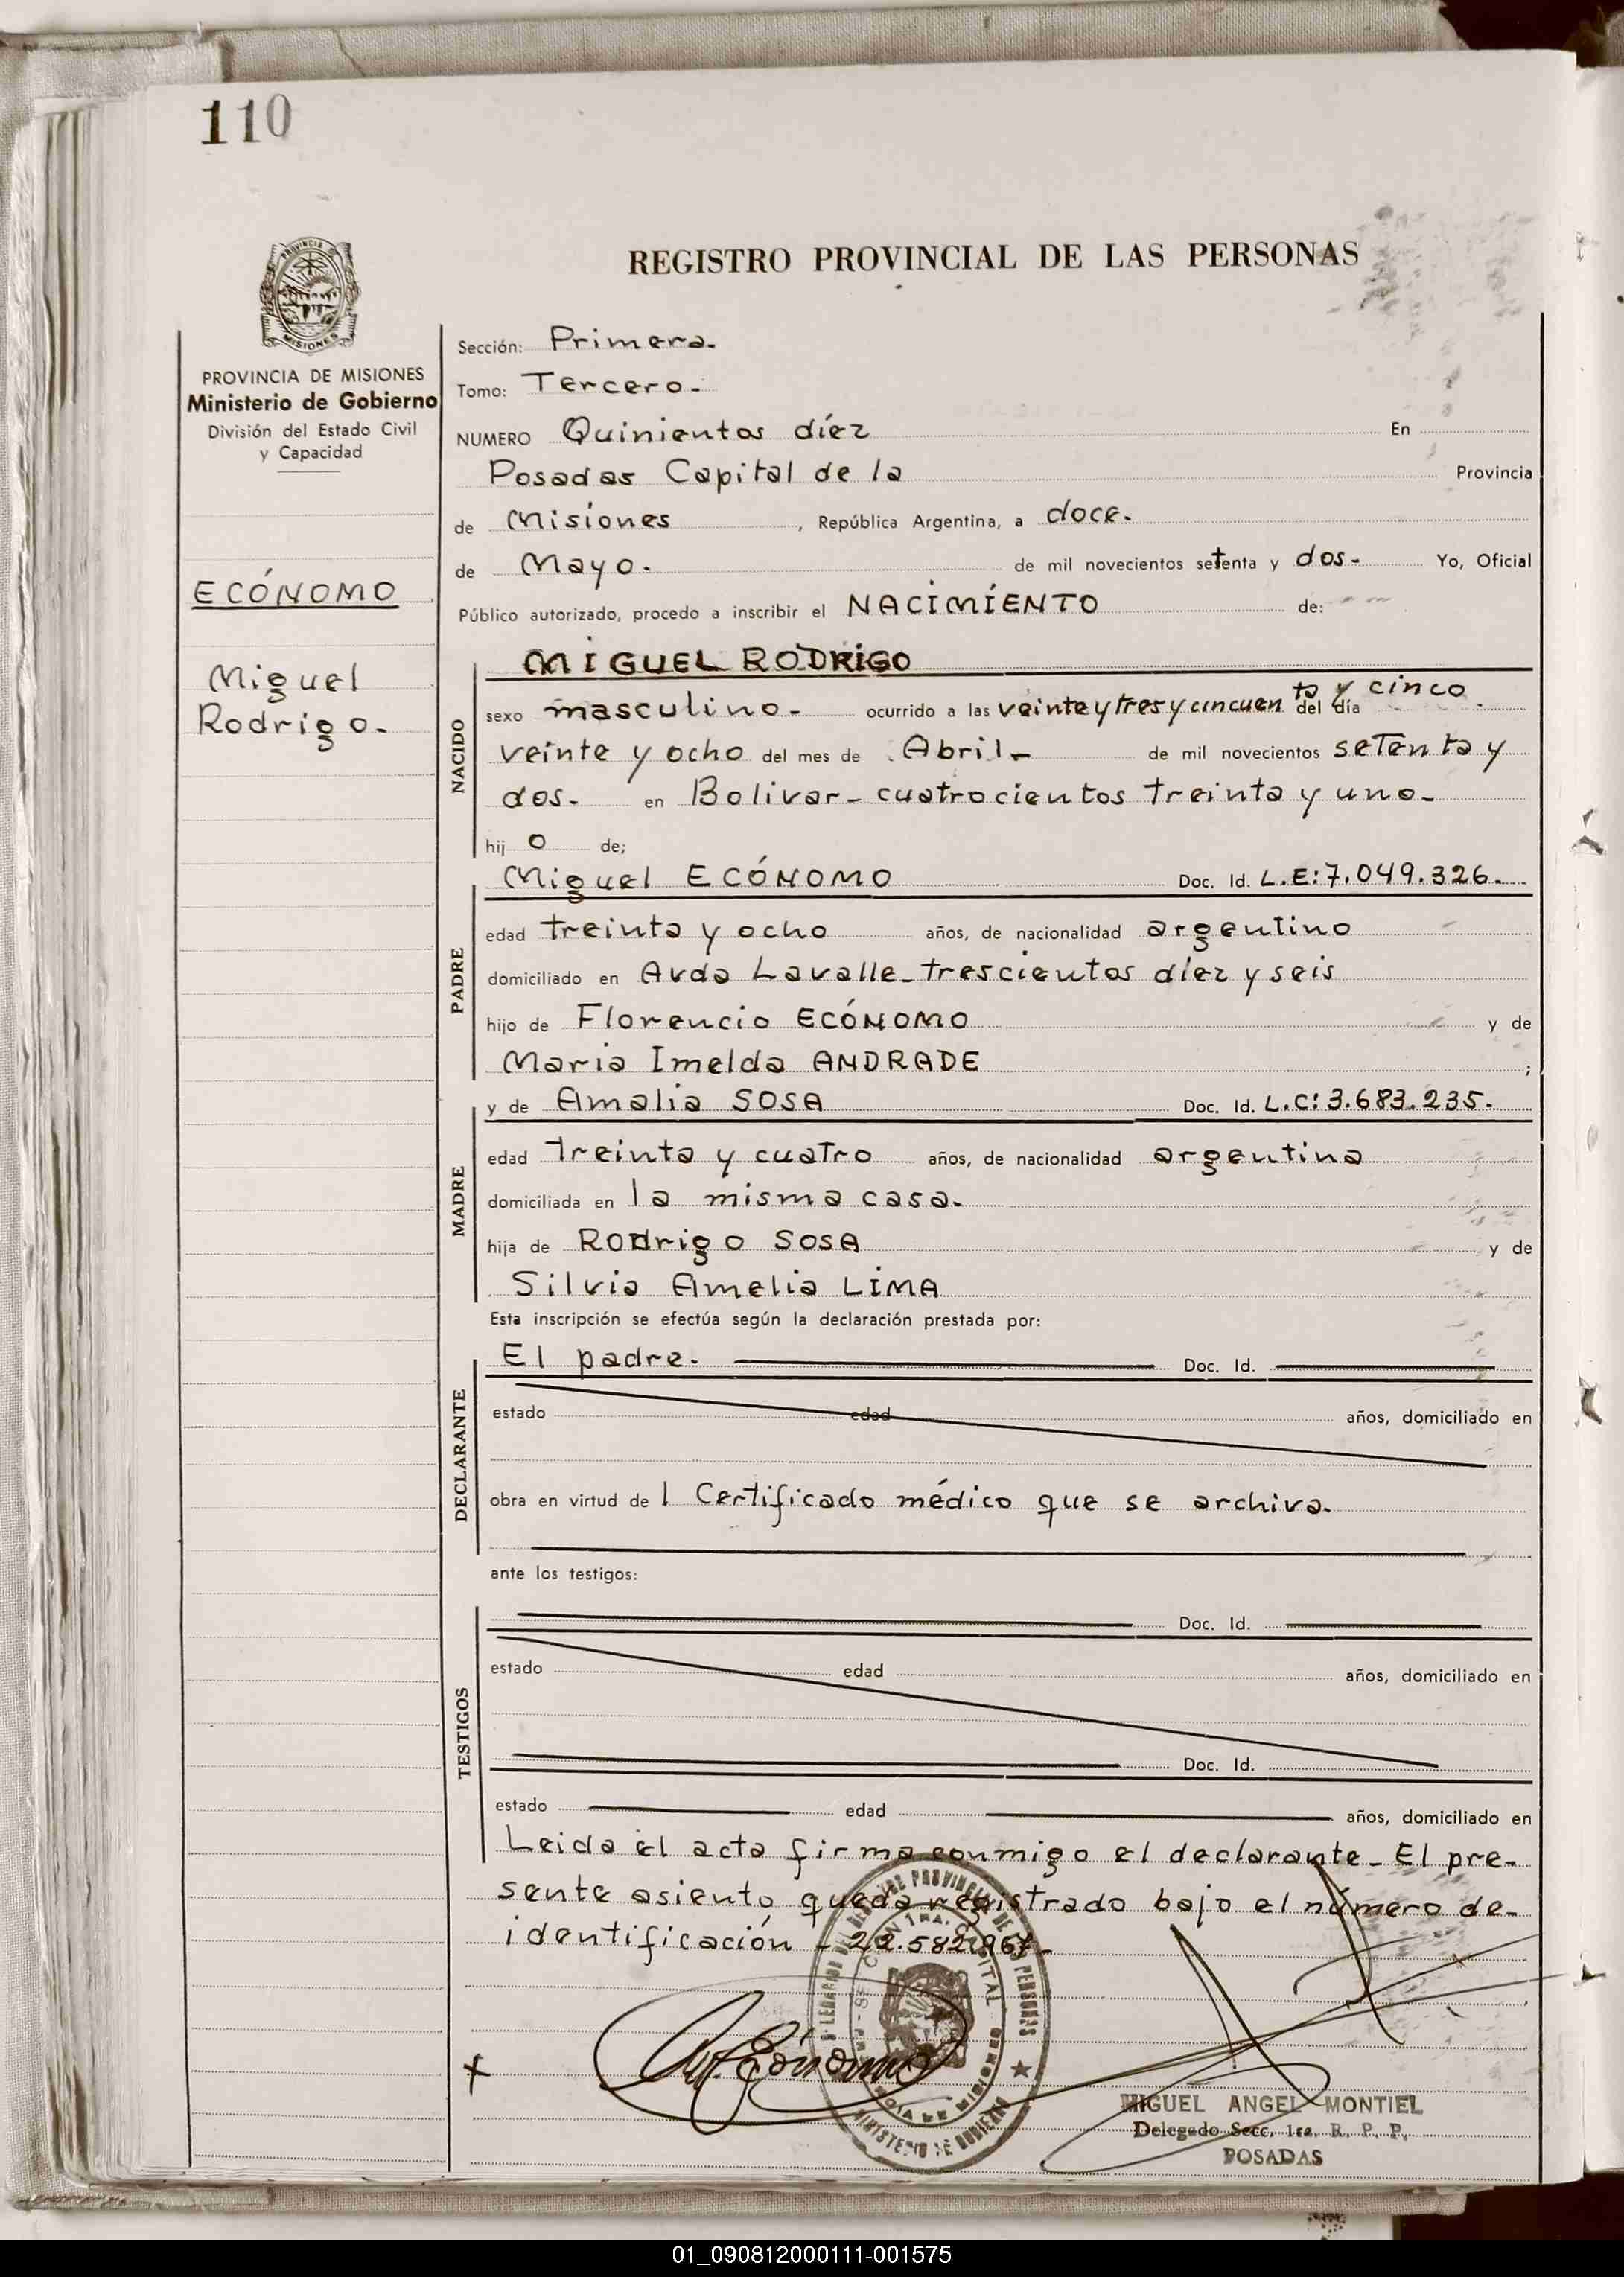 110
PROVINCIA
MISIONES
REGISTRO PROVINCIAL DE LAS PERSONAS
PROVINCIA DE MISIONES
Ministerio de Gobierno
División del Estado Civil
y Capacidad
ECÓNOMO
Miguel
Rodrigo.-
Sección: Primera.
Tomo: Tercero.-
NUMERO Quinientos díez En
Posadas Capital de la Provincia
de Misiones, República Argentina, a doce.
de Mayo. de mil novecientos setenta y dos- Yo, Oficial
Público autorizado, procedo a inscribir el NACIMIENTO de:
NACIDO
MIGUEL RODRIGO
sexo masculino.- ocurrido a las veinte y tres y cincuenta y cinco del día
veinte y ocho del mes de Abril- de mil novecientos setenta y
dos. en Bolivar- cuatrocientos treinta y uno-
hij o de;
PADRE
Miguel ECÓNOMO Doc. Id. L.E:7.049.326.
edad treinta y ocho años, de nacionalidad argentino
domiciliado en Avda Lavalle- trescientos díez y seis
hijo de Florencio ECÓNOMO y de
Maria Imelda ANDRADE ;
MADRE
y de Amalia SOSA Doc. Id. L.C:3.683.235.
edad treinta y cuatro años, de nacionalidad argentina
domiciliada en la misma casa.
hija de Rodrigo SOSA y de
Silvia Amelia LIMA
Esta inscripción se efectúa según la declaración prestada por:
DECLARANTE
El padre. Doc. Id.
estado edad años, domiciliado en
obra en virtud de l Certificado médico que se archiva.
ante los testigos:
TESTIGOS
Doc. Id.
estado edad años, domiciliado en
Doc. Id.
estado edad años, domiciliado en
Leida el acta firma conmigo el declarante- El pre-
sente asiento queda registrado bajo el número de-
identificación - 22.582.
MINISTERIO DE GOBIERNO
MIGUEL ANGEL MONTIEL
Delegado Secc. 1ra. R. P. P.
POSADAS
01_090812000111-001575